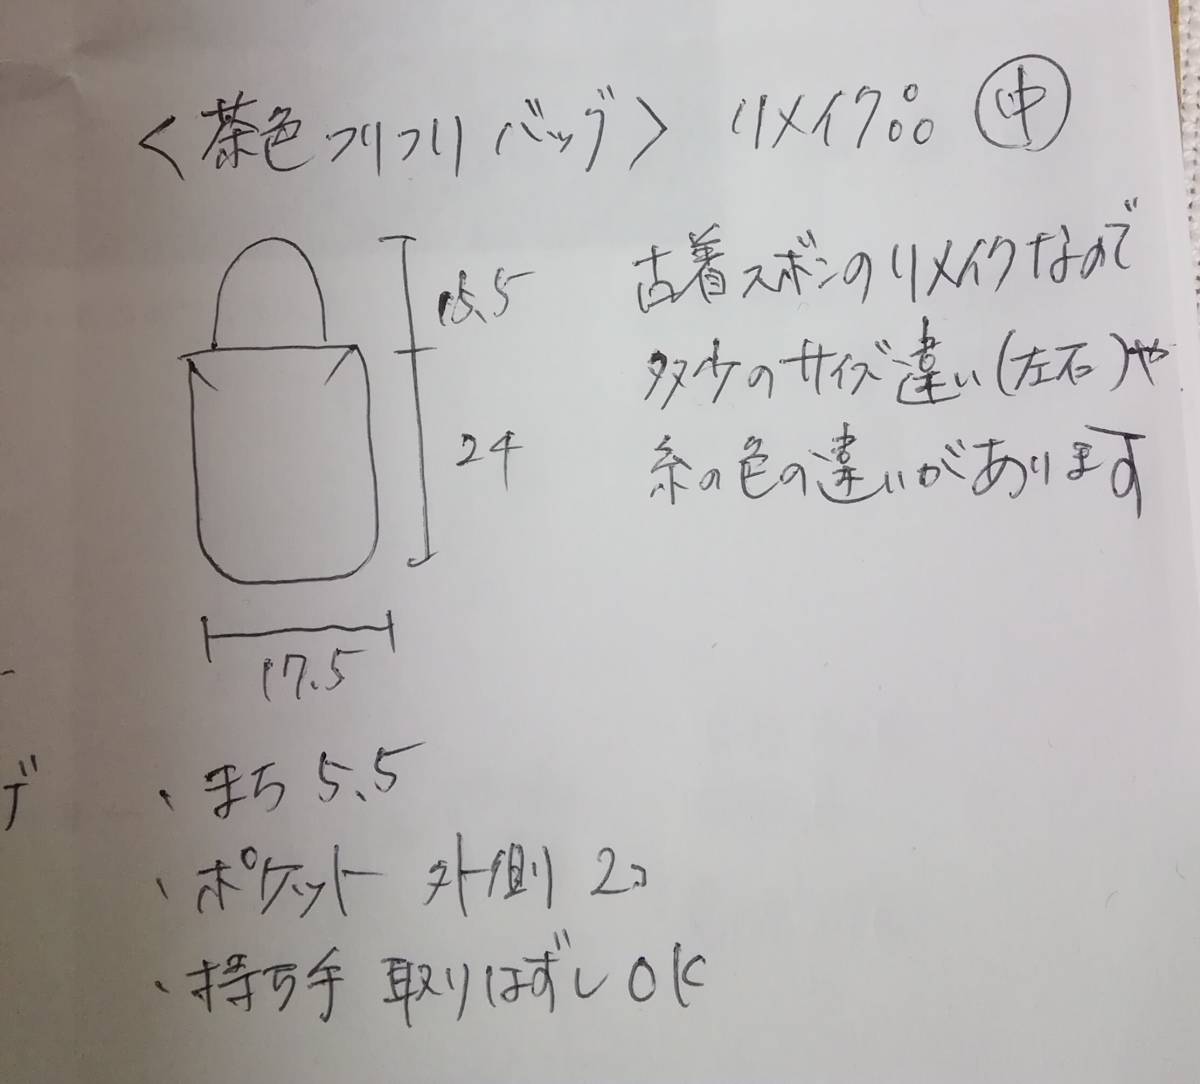 <茶色フリフリバッグ> リメイク品 中
15.5
古着ズボンのリメイクなので
多少のサイズ違い(左右)や
24
糸の色の違いがあります
17.5
・まち 5.5
・ポケット 外側 2コ
・持ち手 取りはずしOK
デ